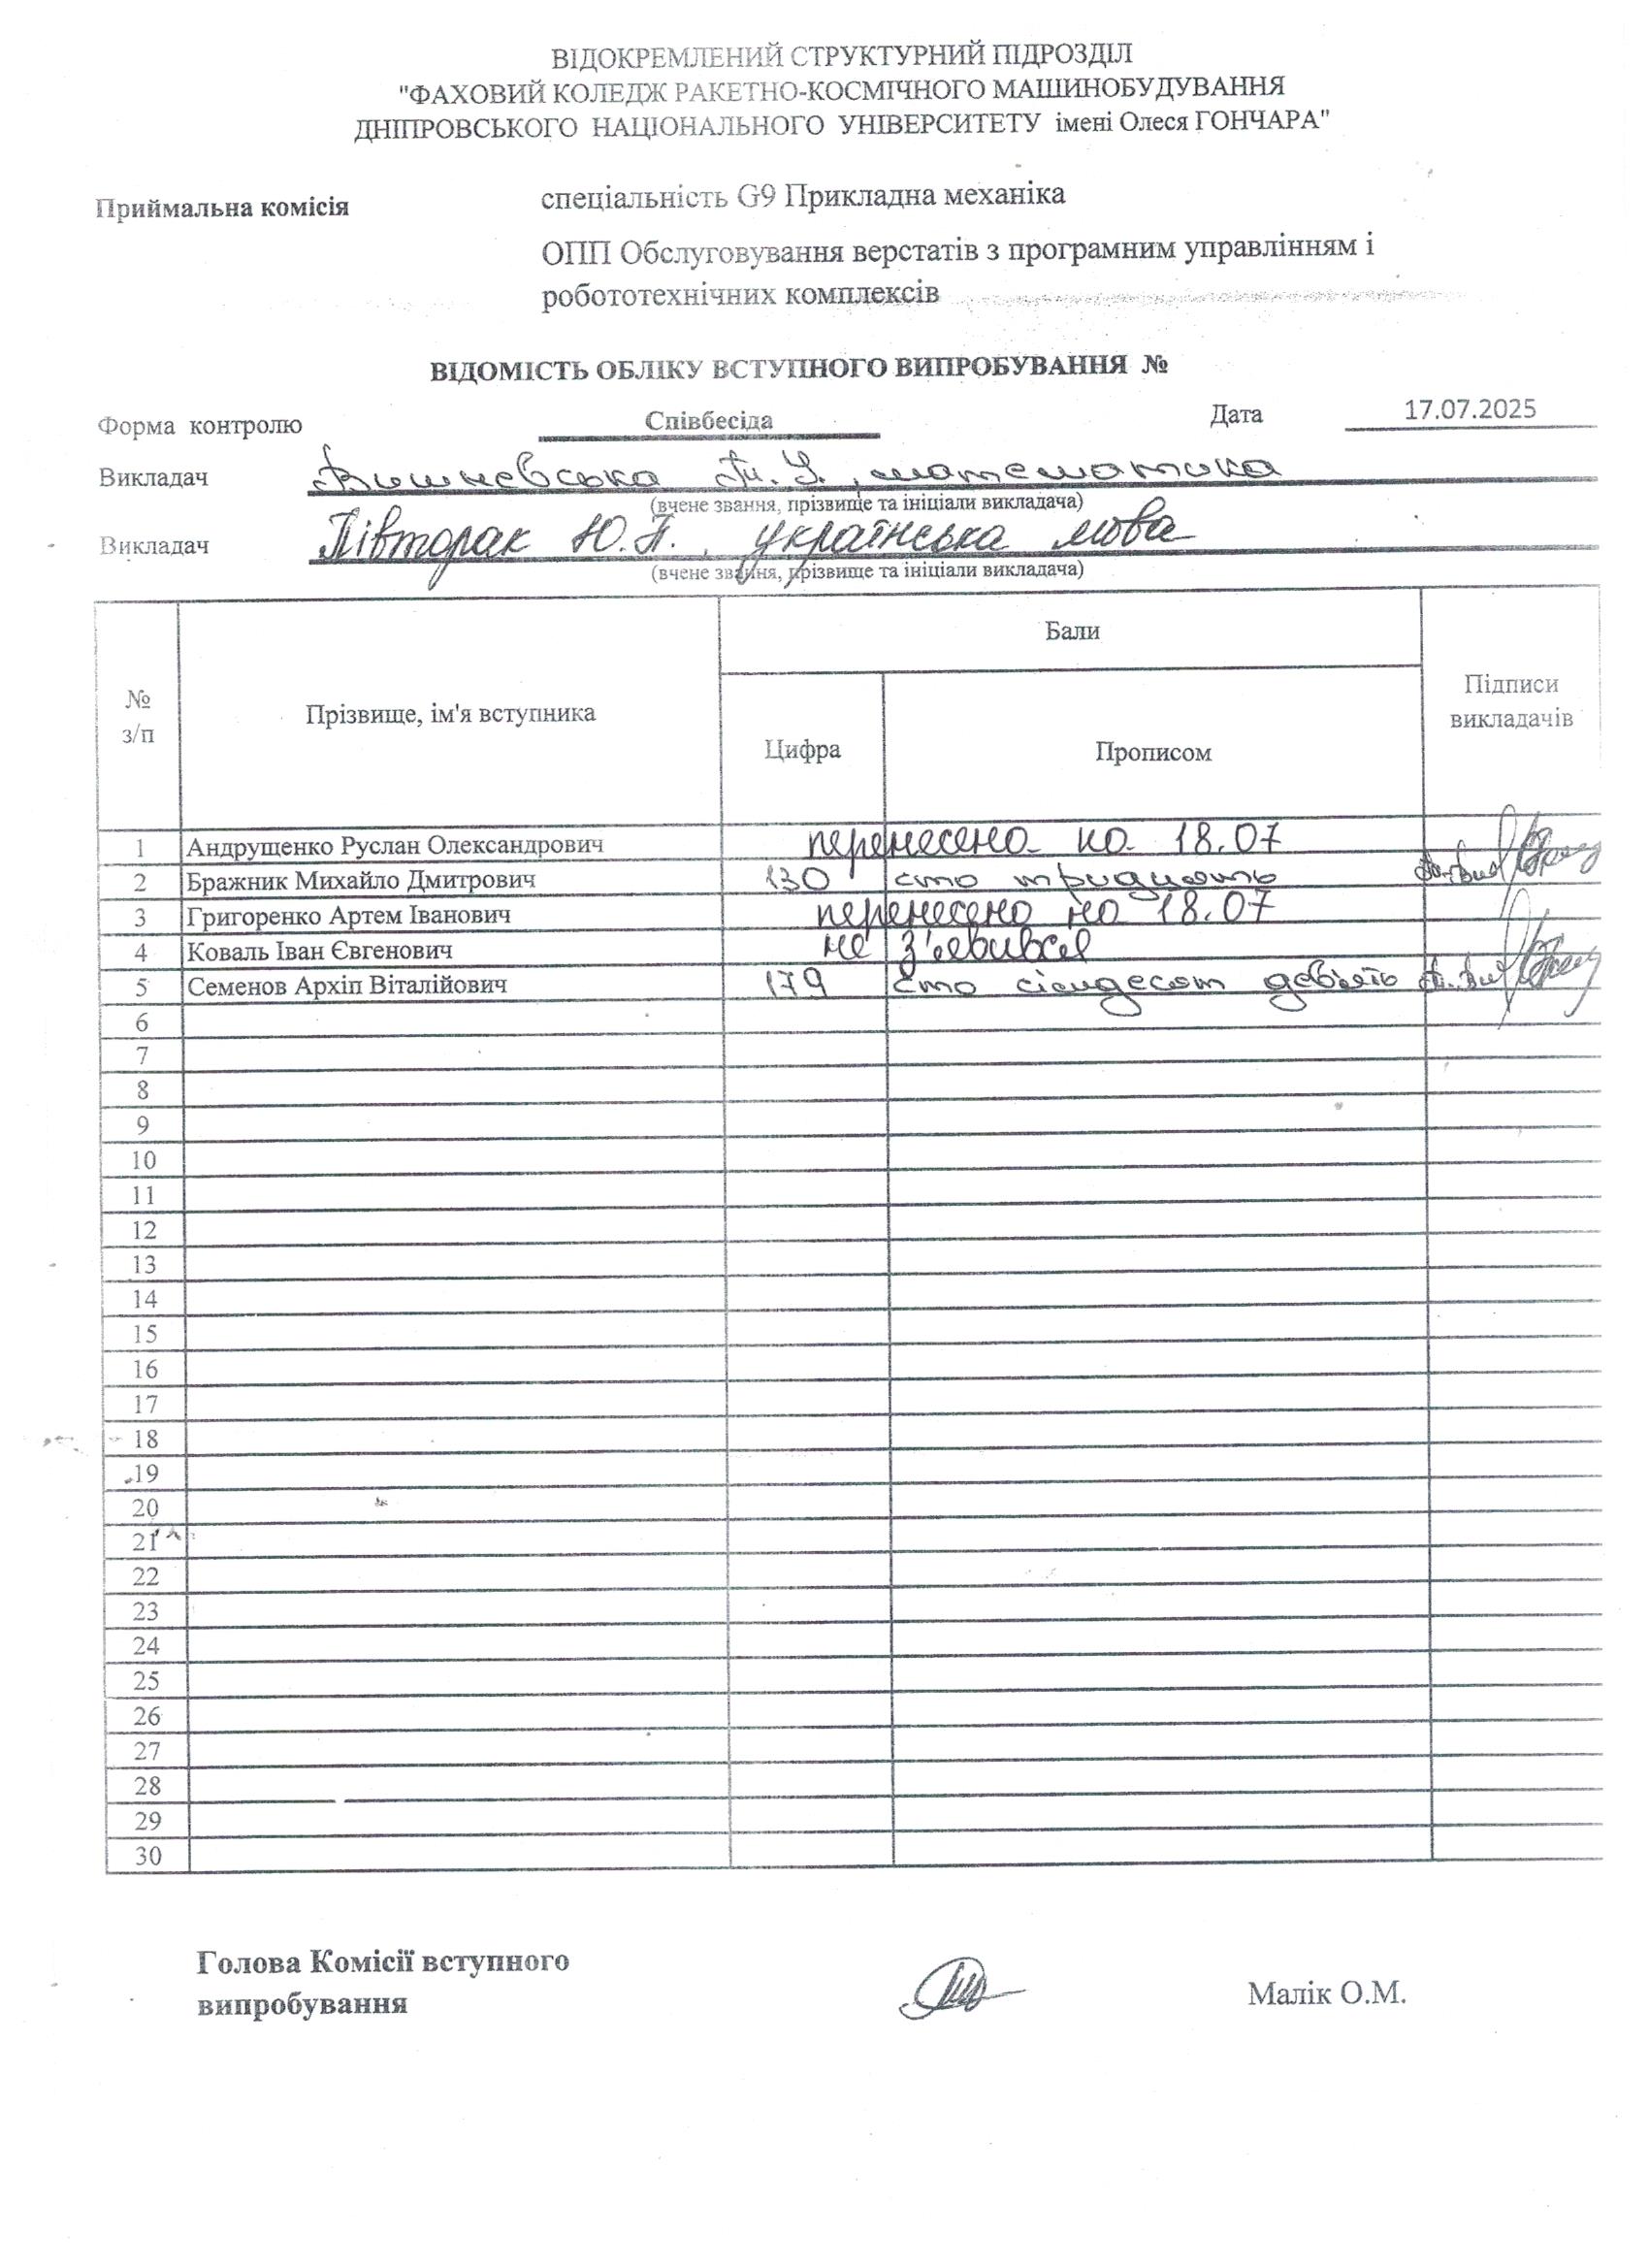 ВІДОКРЕМЛЕНИЙ СТРУКТУРНИЙ ПІДРОЗДІЛ
"ФАХОВИЙ КОЛЕДЖ РАКЕТНО-КОСМІЧНОГО МАШИНОБУДУВАННЯ
ДНІПРОВСЬКОГО НАЦІОНАЛЬНОГО УНІВЕРСИТЕТУ імені Олеся ГОНЧАРА"
Приймальна комісія спеціальність G9 Прикладна механіка
ОПП Обслуговування верстатів з програмним управлінням і
робототехнічних комплексів
ВІДОМІСТЬ ОБЛІКУ ВСТУПНОГО ВИПРОБУВАННЯ №
Форма контролю Співбесіда Дата 17.07.2025
Викладач Вишневська математика
(вчене звання, прізвище та ініціали викладача)
Викладач Півторак Ю.П., українська мова
(вчене звання, прізвище та ініціали викладача)
№ з/п Прізвище, ім'я вступника Бали Підписи викладачів
Цифра Прописом
1 Андрущенко Руслан Олександрович перенесено на 18.07
2 Бражник Михайло Дмитрович 130 сто тридцять
3 Григоренко Артем Іванович перенесено на 18.07
4 Коваль Іван Євгенович не з'явився
5 Семенов Архіп Віталійович 179 сто сімдесят дев'ять
6
7
8
9
10
11
12
13
14
15
16
17
18
19
20
21
22
23
24
25
26
27
28
29
30
Голова Комісії вступного
випробування Малік О.М.